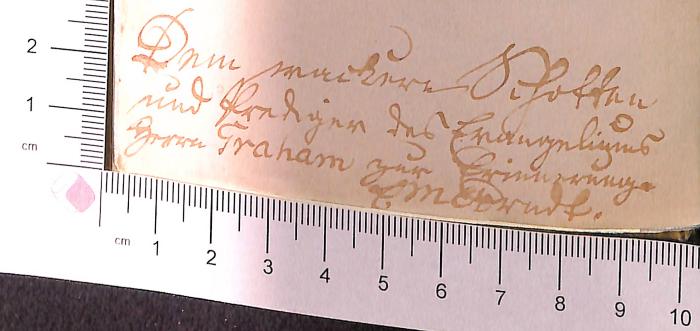 Dem wackern Schotten
und Prediger des Evangeliums
Herrn Graham zur Erinnerung.
EMArndt.
2
1
cm
cm 1 2 3 4 5 6 7 8 9 10